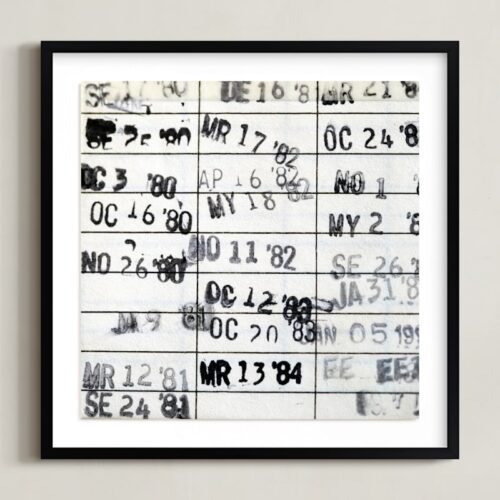 SE 17 '80
SE 25 '80
OC 3 '80
OC 16 '80
NO 26 '80
JA 9 '81
MR 12 '81
SE 24 '81
DE 16 '8
MR 17 '82
AP 16 '82
MY 18 '82
NO 11 '82
OC 12 '83
OC 20 '83
MR 13 '84
MR 21 '8
OC 24 '8
NO 1
MY 2 '8
SE 26
JA 31 '8
AN 05 199
EE